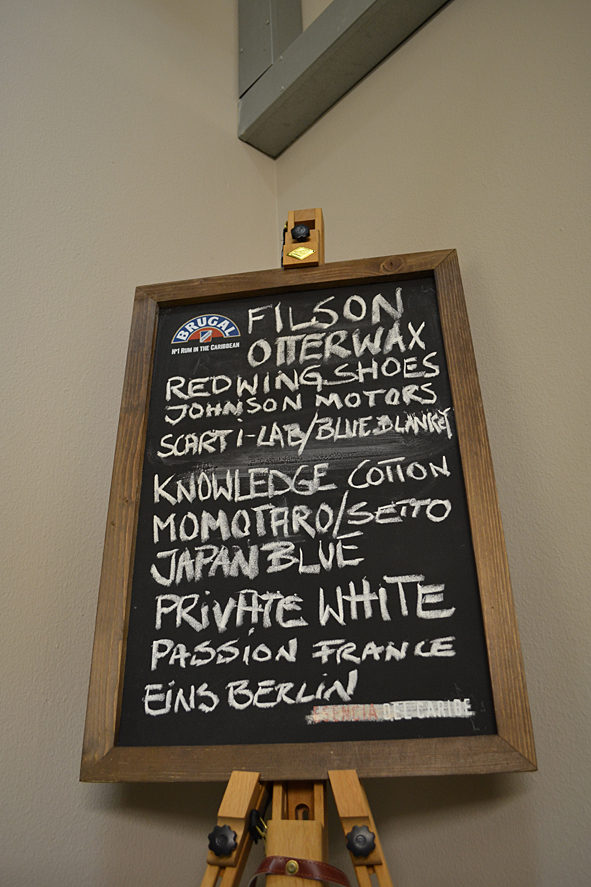 BRUGAL
Nº1 RUM IN THE CARIBBEAN
FILSON
OTTERWAX
RED WING SHOES
JOHNSON MOTORS
SCARTi-LAB/BLUE BLANKET
KNOWLEDGE COTTON
MOMOTARO/SETTO
JAPAN BLUE
PRiVATE WHITE
PASSION FRANCE
EiNS BERLiN
DEL CARIBE